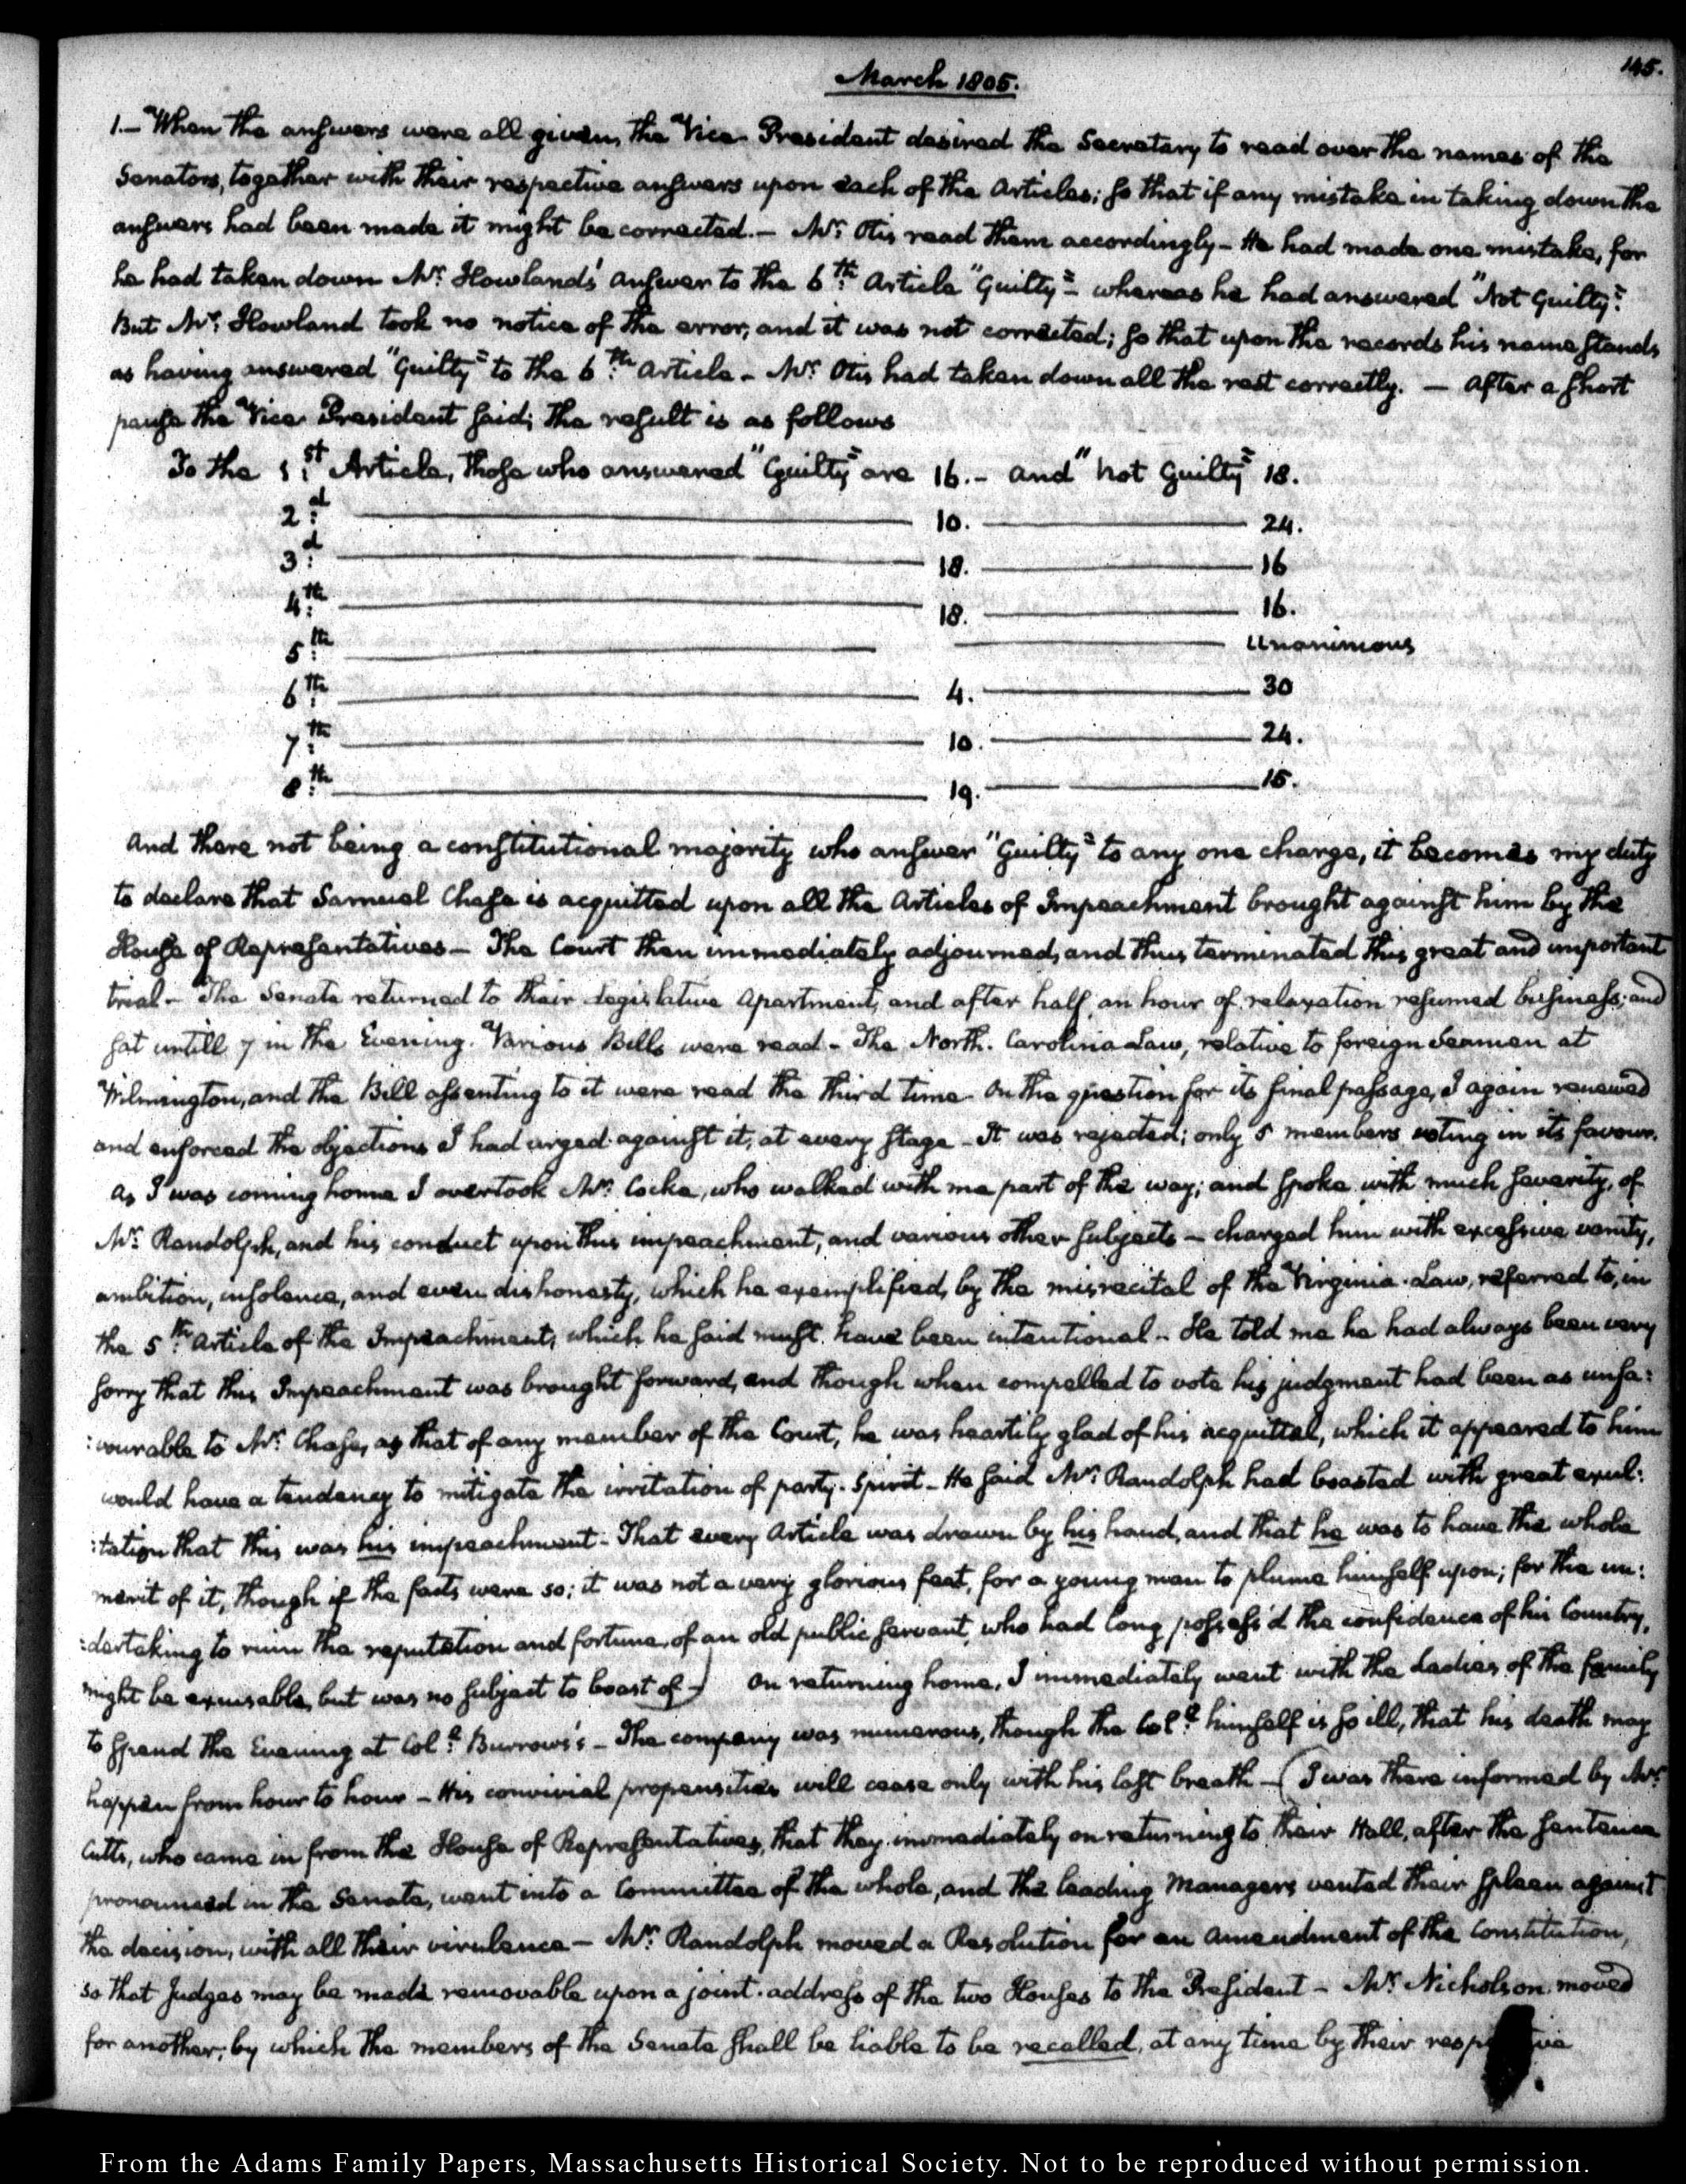 145.
March 1805.
1.- When the answers were all given, the Vice-President desired the Secretary to read over the names of the
Senators, together with their respective answers upon each of the Articles; so that if any mistake in taking down the
answers had been made it might be corrected.- Mr. Otis read them accordingly- He had made one mistake, for
he had taken down Mr. Howland's answer to the 6th: Article "Guilty"- whereas he had answered "Not Guilty."
But Mr. Howland took no notice of the error, and it was not corrected; so that upon the records his name stands
as having answered "Guilty" to the 6th: Article- Mr. Otis had taken down all the rest correctly. - After a short
pause the Vice President said; the result is as follows
To the 1st: Article, those who answered "Guilty" are 16.- and "not Guilty" 18.
2d: 10. 24.
3d: 18. 16
4th: 18. 16.
5th: unanimous
6th: 4. 30
7th: 10. 24.
8th: 19. 15.
And there not being a constitutional majority who answer "Guilty" to any one charge, it becomes my duty
to declare that Samuel Chase is acquitted upon all the Articles of Impeachment brought against him by the
House of Representatives- The Court then immediately adjourned, and thus terminated this great and important
trial- The Senate returned to their Legislative Apartment, and after half an hour of relaxation resumed business; and
sat untill 7 in the Evening. Various Bills were read- The North-Carolina Law, relative to foreign Seamen at
Wilmington, and the Bill assenting to it were read the third time- On the question for its final passage, I again renewed
and enforced the objections I had urged against it, at every stage- It was rejected; only 5 members voting in its favour.
As I was coming home I overtook Mr. Cocke, who walked with me part of the way; and spoke with much severity, of
Mr. Randolph, and his conduct upon this impeachment, and various other subjects- charged him with excessive vanity,
ambition, insolence, and even dishonesty, which he exemplified, by the misrecital of the Virginia-Law, referred to, in
the 5th: Article of the Impeachment, which he said must have been intentional- He told me he had always been very
sorry that this Impeachment was brought forward, and though when compelled to vote his judgment had been as unfa:
:vourable to Mr. Chase, as that of any member of the Court, he was heartily glad of his acquittal, which it appeared to him
would have a tendency to mitigate the irritation of party-spirit- He said Mr. Randolph had boasted with great exul:
:tation that this was his impeachment- That every Article was drawn by his hand, and that he was to have the whole
merit of it, though if the facts were so; it was not a very glorious feat, for a young man to plume himself upon; for the un:
:dertaking to ruin the reputation and fortune, of an old public servant, who had long possess'd the confidence of his Country,
might be excusable, but was no subject to boast of-) On returning home, I immediately went with the Ladies of the family
to spend the Evening at Coll: Burrows's- The company was numerous, though the Coll: himself is so ill, that his death may
happen from hour to hour- His convivial propensities will cease only with his last breath- (I was there informed by Mr.
Cutts, who came in from the House of Representatives, that they immediately on returning to their Hall, after the sentence
pronounced in the Senate, went into a Committee of the whole, and the leading Managers vented their spleen against
the decision, with all their virulence- Mr. Randolph moved a Resolution for an amendment of the Constitution,
so that Judges may be made removable upon a joint-address of the two Houses to the President- Mr. Nicholson moved
for another; by which the members of the Senate shall be liable to be recalled, at any time by their respective
From the Adams Family Papers, Massachusetts Historical Society. Not to be reproduced without permission.